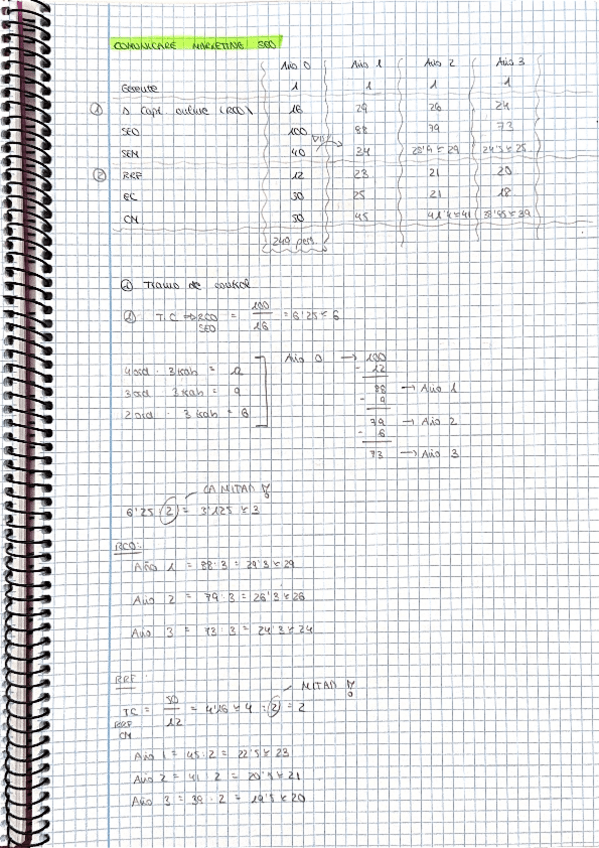 COMUNICARE MARKETING: SEO
Año 0 Año 1 Año 2 Año 3
Gerente 1 1 1 1
① D Capt. online (RCO) 16 29 26 24
SEO 100 88 79 73
SEM 40 34 28'9 ≈ 29 24'5 ≈ 25
② RRF 12 23 21 20
EC 30 25 21 18
CM 50 45 41'4 ≈ 41 38'95 ≈ 39
240 pers.
① Tramo de control
① T.C ⇒ RCO / SEO = 100 / 16 = 6'25 ≈ 6
4 · 3 = 12 Año 0 → 100
- 12
3 · 3 = 9 88 → Año 1
- 9
2 · 3 = 6 79 → Año 2
- 6
73 → Año 3
LA MITAD
6'25 : 2 = 3'125 ≈ 3
RCO:
Año 1 = 88 : 3 = 29'3 ≈ 29
Año 2 = 79 : 3 = 26'3 ≈ 26
Año 3 = 73 : 3 = 24'3 ≈ 24
RRF
MITAD
TC = 50 / 12 = 4'16 ≈ 4 : 2 = 2
RRF
CM
Año 1 = 45 : 2 = 22'5 ≈ 23
Año 2 = 41 : 2 = 20'5 ≈ 21
Año 3 = 39 : 2 = 19'5 ≈ 20